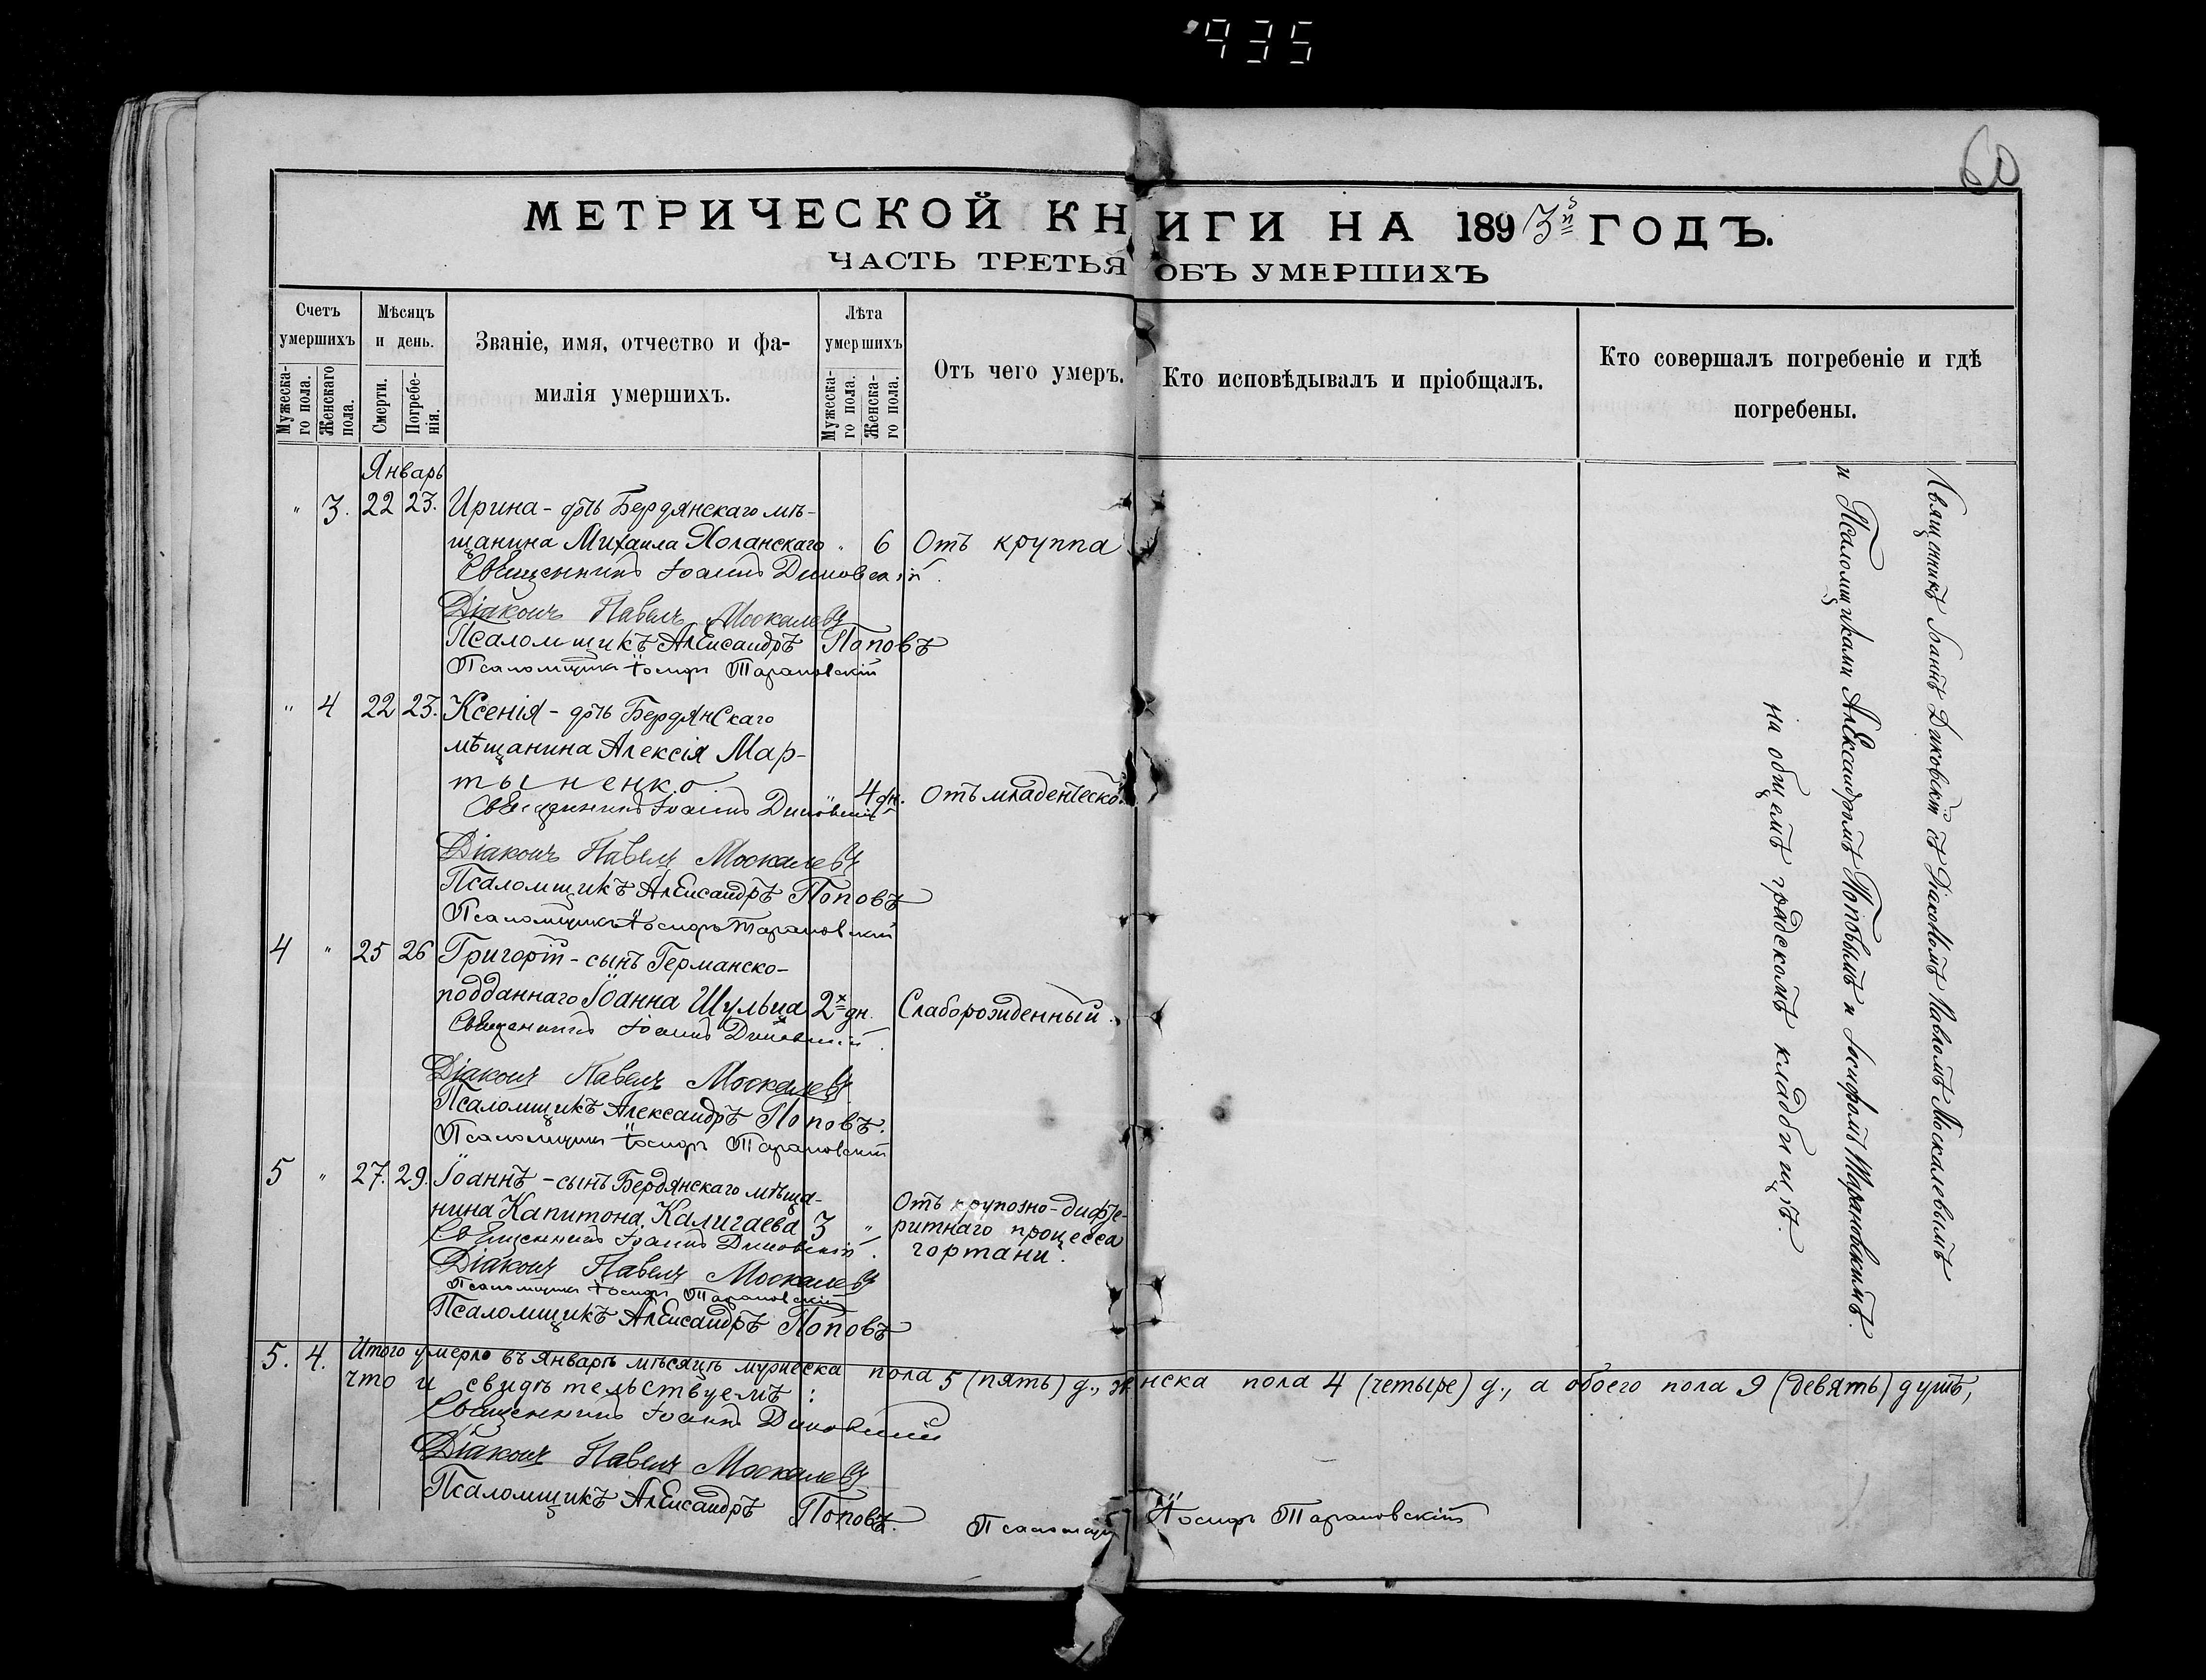 435
60
МЕТРИЧЕСКОЙ КНИГИ НА 1893й ГОДЪ.
ЧАСТЬ ТРЕТЬЯ ОБЪ УМЕРШИХЪ
Счетъ умершихъ
Мужеска-го пола.
Женскаго пола.
Мѣсяцъ и день.
Смерти.
Погребе-нія.
Званіе, имя, отчество и фа-
милія умершихъ.
Лѣта умершихъ
Мужеска-го пола.
Женска-го пола.
Отъ чего умеръ.
Кто исповѣдывалъ и пріобщалъ.
Кто совершалъ погребеніе и гдѣ
погребены.
Январь
" 3. 22 23. Ирина - дочь Бердянскаго мѣ-
щанина Михаила Холанскаго " 6 Отъ круппа
Священникъ Іоаннъ
Діаконъ Павелъ Москалевъ
Псаломщикъ Александръ Поповъ
Псаломщикъ Іосифъ Тарановскій
" 4 22 23. Ксенія - дочь Бердянскаго
мѣщанина Алексія Мар-
тыненко
4 дн. Отъ младенческой
Священникъ Іоаннъ
Діаконъ Павелъ Москалевъ
Псаломщикъ Александръ Поповъ
Псаломщикъ Іосифъ Тарановскій
4 " 25 26 Григорій - сынъ Германско-
подданнаго Іоанна Шульца 2х дн. Слаборожденный.
Священникъ Іоаннъ
Діаконъ Павелъ Москалевъ
Псаломщикъ Александръ Поповъ.
Псаломщикъ Іосифъ Тарановскій
5 " 27. 29. Іоаннъ - сынъ Бердянскаго мѣща-
нина Капитона Калигаева 3 "
Отъ крупозно-дифте-
ритнаго процесса
гортани.
Священникъ Іоаннъ
Діаконъ Павелъ Москалевъ
Псаломщикъ Іосифъ Тарановскій
Псаломщикъ Александръ Поповъ
Священникъ Іоаннъ съ Діакономъ Павломъ Москалевымъ
и Псаломщиками Александромъ Поповымъ и Іосифомъ Тарановскимъ.
на общемъ градскомъ кладбищѣ.
5. 4. Итого умерло въ Январѣ мѣсяцѣ мужеска пола 5 (пять) д., женска пола 4 (четыре) д., а обоего пола 9 (девять) душъ,
что и свидѣтельствуемъ:
Священникъ Іоаннъ
Діаконъ Павелъ Москалевъ
Псаломщикъ Александръ Поповъ.
Псаломщикъ Іосифъ Тарановскій